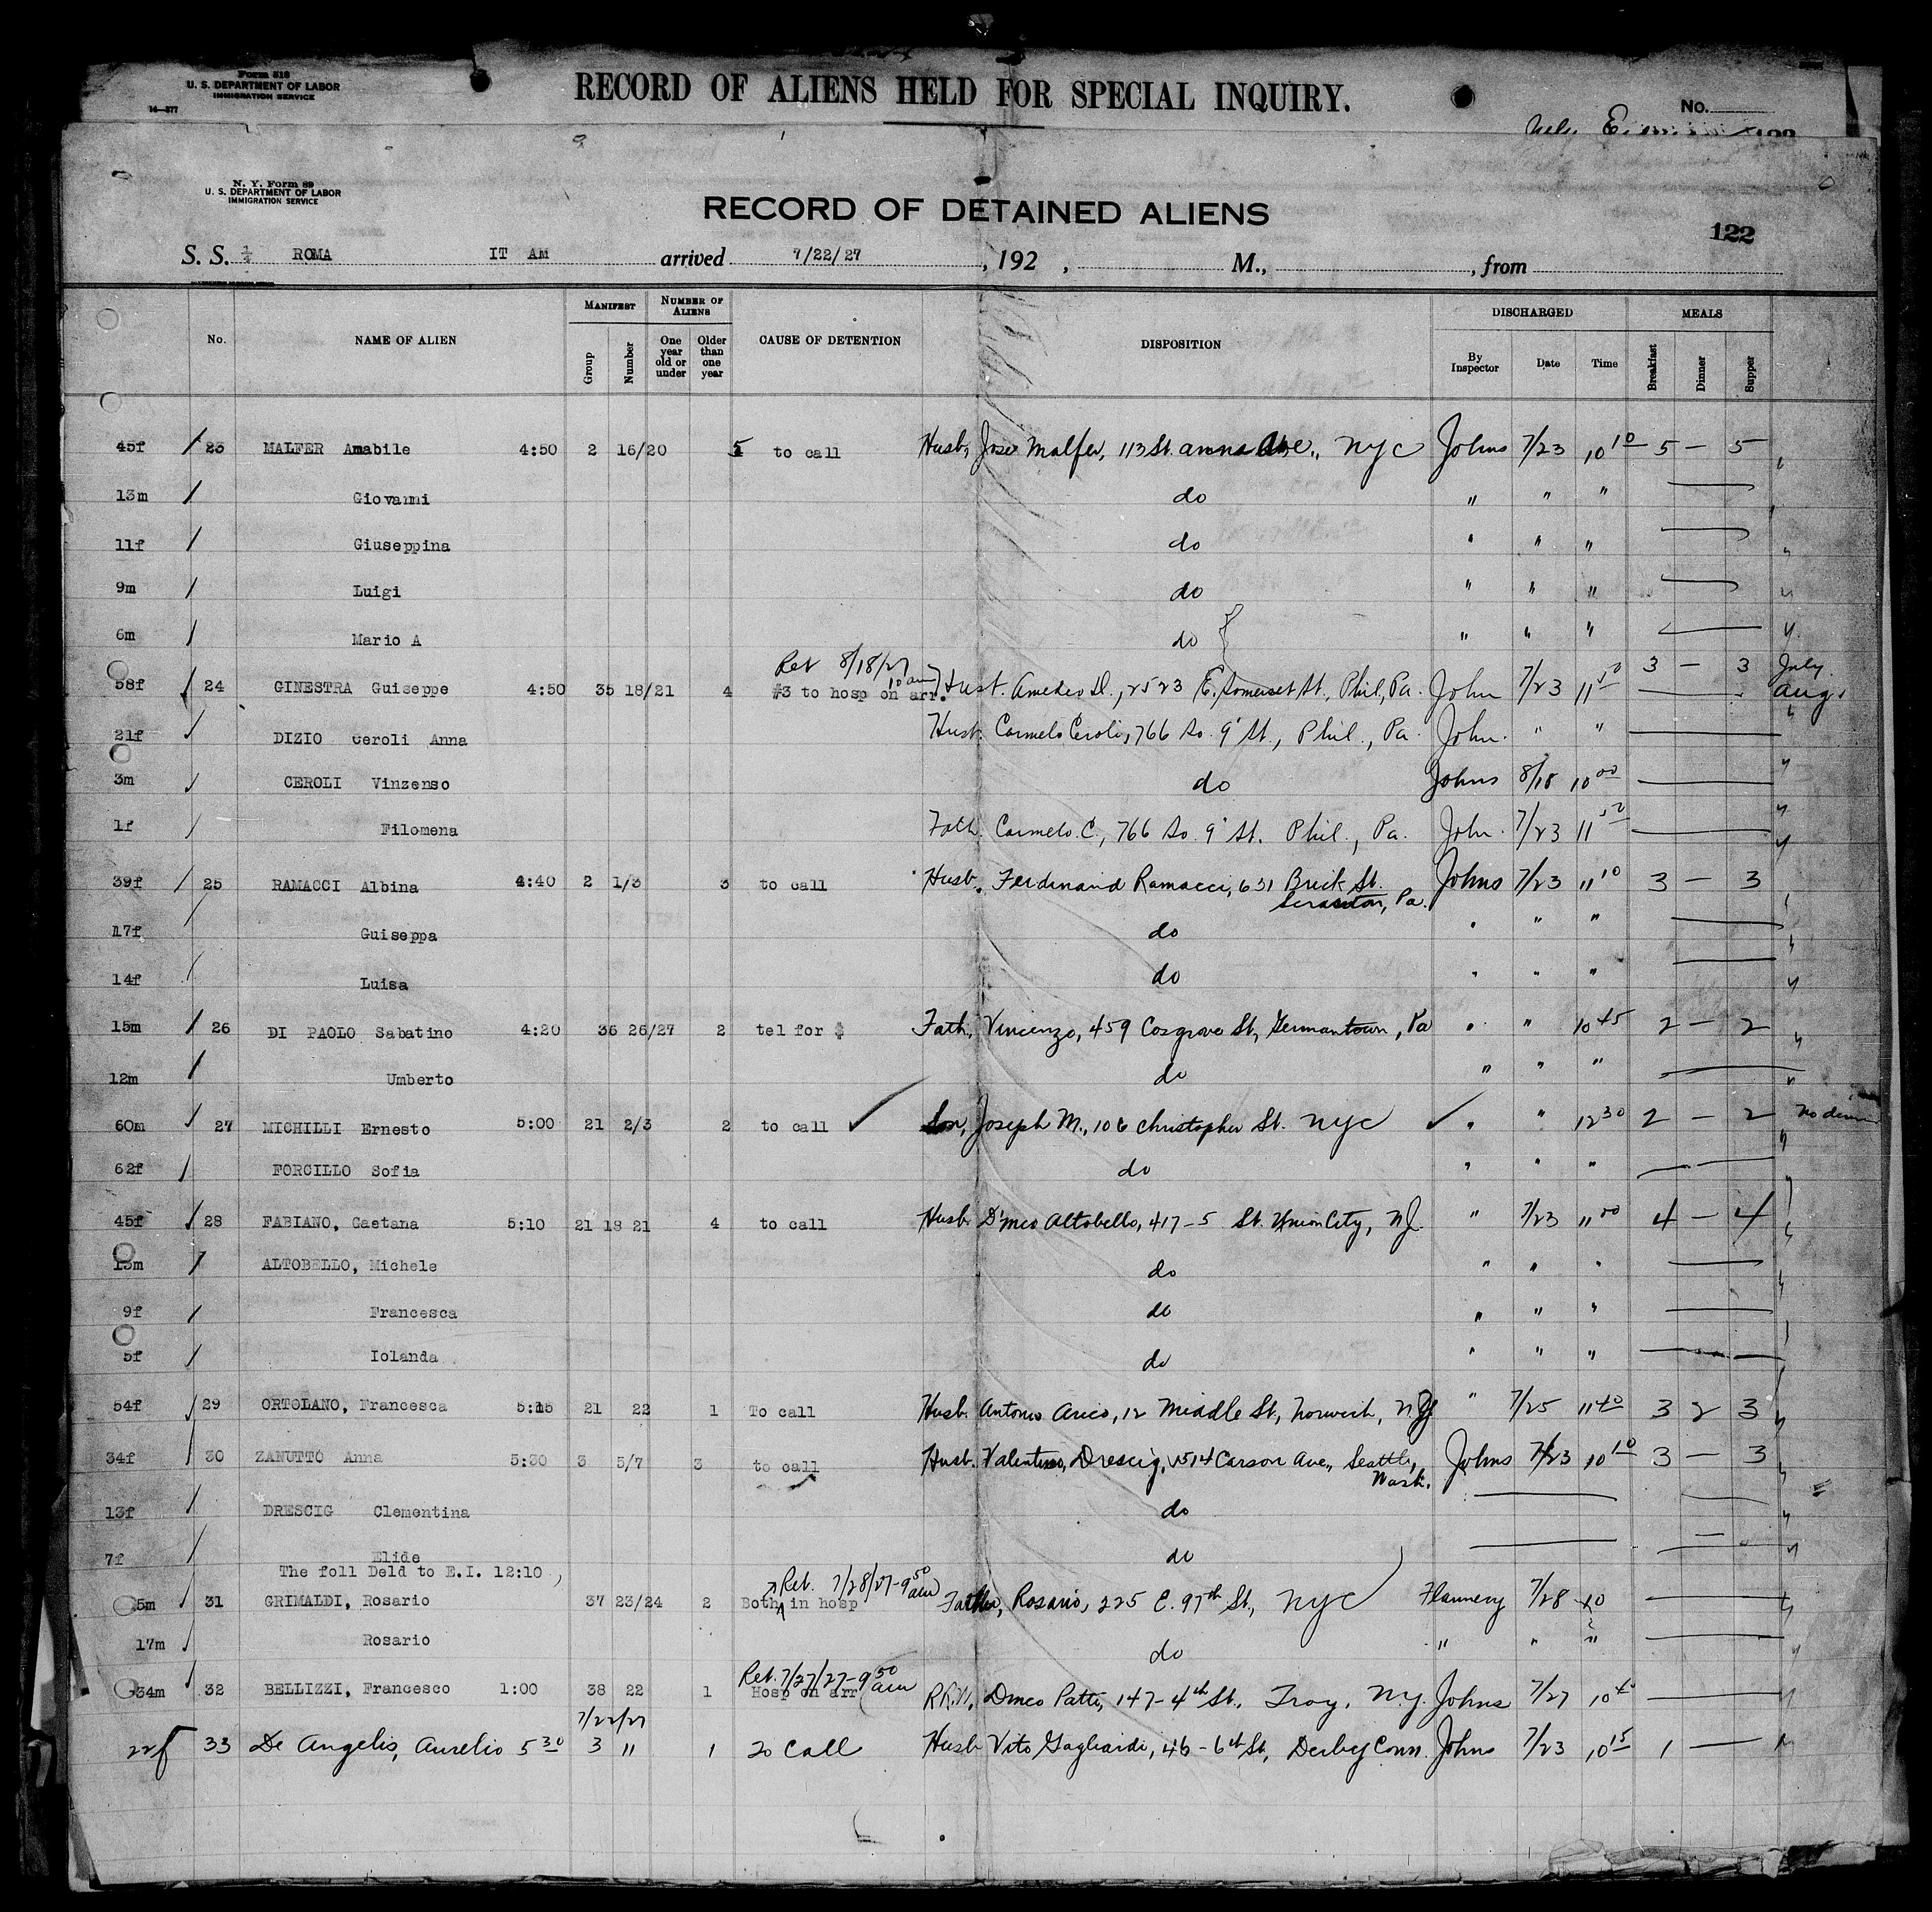 Form 518
U. S. DEPARTMENT OF LABOR
IMMIGRATION SERVICE
14—377
RECORD OF ALIENS HELD FOR SPECIAL INQUIRY.
No.
N. Y. Form 89
U. S. DEPARTMENT OF LABOR
IMMIGRATION SERVICE
RECORD OF DETAINED ALIENS
122
S. S. ROMA IT AM arrived 7/22/27 , 192 , M., , from
No. NAME OF ALIEN MANIFEST Group Number NUMBER OF ALIENS One year old or under Older than one year CAUSE OF DETENTION DISPOSITION DISCHARGED By Inspector Date Time MEALS Breakfast Dinner Supper
45f / 23 MALFER Amabile 4:50 2 16/20 5 to call Husb, Jose Malfer, 113 St. Anns Ave., NYC Johns 7/23 10 10 5 — 5 "
13m / Giovanni do " " " "
11f / Giuseppina do " " " "
9m / Luigi do " " " "
6m / Mario A do " " " "
Ret 8/18/27 10 am
58f / 24 GINESTRA Guiseppe 4:50 35 18/21 4 #3 to hosp on arr. Hust. Amedeo D., 2523 E. Somerset St., Phil, Pa. John 7/23 11 50 3 — 3 July Aug
21f / DIZIO Ceroli Anna Hust. Carmelo Ceroli, 766 So. 9' St., Phil., Pa. John. " " "
3m / CEROLI Vinzenso do Johns 8/18 10 00 "
1f / Filomena Fath. Carmelo C., 766 So. 9' St. Phil., Pa. John. 7/23 11 50 "
39f / 25 RAMACCI Albina 4:40 2 1/3 3 to call Husb. Ferdinand Ramacci, 631 Brick St. Scranton, Pa. Johns 7/23 11 10 3 — 3 "
17f / Guiseppa do " " " "
14f / Luisa do " " " "
15m / 26 DI PAOLO Sabatino 4:20 36 26/27 2 tel for $ Fath, Vincenzo, 459 Cosgrove St, Germantown, Pa " " 10 45 2 — 2 "
12m / Umberto do " " " "
60m / 27 MICHILLI Ernesto 5:00 21 2/3 2 to call ✓ Son, Joseph M., 106 Christopher St. NYC ✓ " " 12 30 2 — 2 No dinn
62f / FORCILLO Sofia do " " " "
45f / 28 FABIANO, Gaetana 5:10 21 18 21 4 to call Husb. D'mco Altobello, 417-5 St. Union City, NJ. " 7/23 11 00 4 — 4 "
13m / ALTOBELLO, Michele do " " " "
9f / Francesca do " " " "
5f / Iolanda do " " " "
54f / 29 ORTOLANO, Francesca 5:15 21 22 1 To call Husb. Antonio Arico, 12 Middle St., Norwich, " 7/25 11 40 3 2 3 "
34f / 30 ZANUTTO Anna 5:30 3 5/7 3 to call Husb. Valentino, Drescig, 1514 Carson Ave., Seattle, Wash. Johns 7/23 10 10 3 — 3 "
13f / DRESCIG Clementina do "
7f / Elide do "
The foll Deld to E.I. 12:10
Ret. 7/28/27-9 50 am
5m 31 GRIMALDI, Rosario 37 23/24 2 Both in hosp Father, Rosario, 225 E. 97th St., NYC Flannery 7/28 10 "
17m / Rosario do " " " "
Ret. 7/27/27-9 50 am
34m / 32 BELLIZZI, Francesco 1:00 38 22 1 Hosp on arr Dmco Patti, 147-4th St., Troy, N.Y. Johns 7/27 10 40 "
7/22/27
22f 33 De Angelis, Aurelio 5 30 3 " 1 to Call Husb Vito Gagliardi, 46-6th St, Derby Conn. Johns 7/23 10 15 1 — "